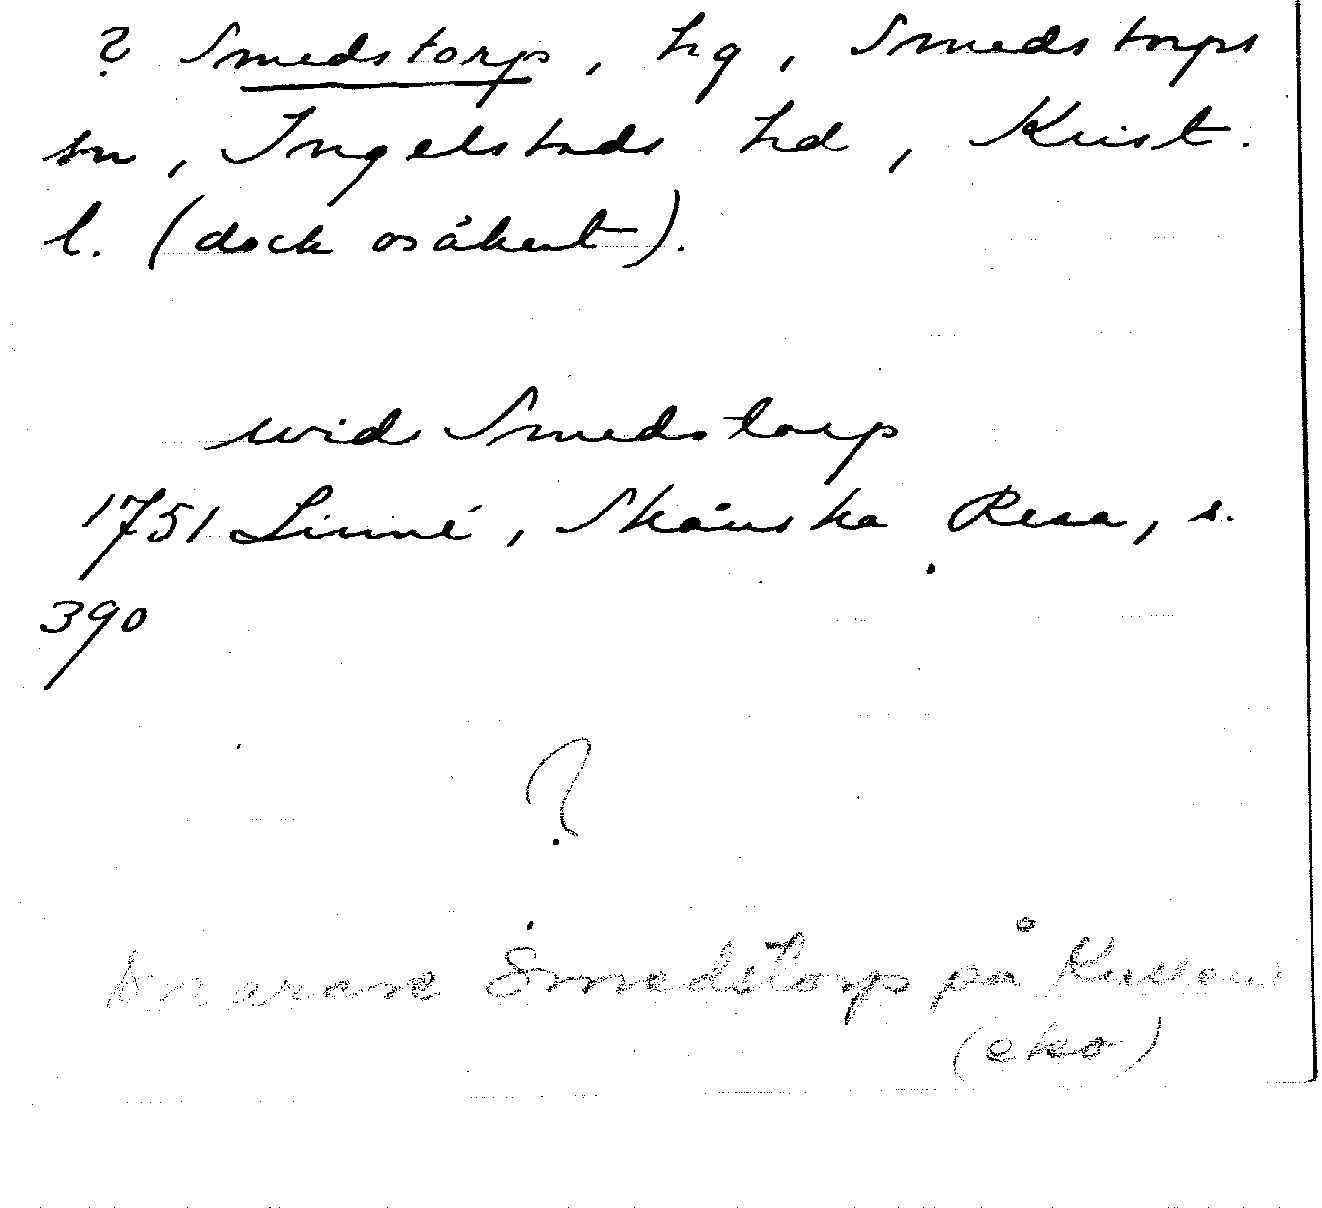 ? Smedstorp, hg, Smedstorps
sn, Ingelstads hd, Krist.
l. (dock osäkert).
wid Smedstorp
1751 Linné, Skånska Resa, s.
390
?
snarare Smedstorp på Kullen
(eko)